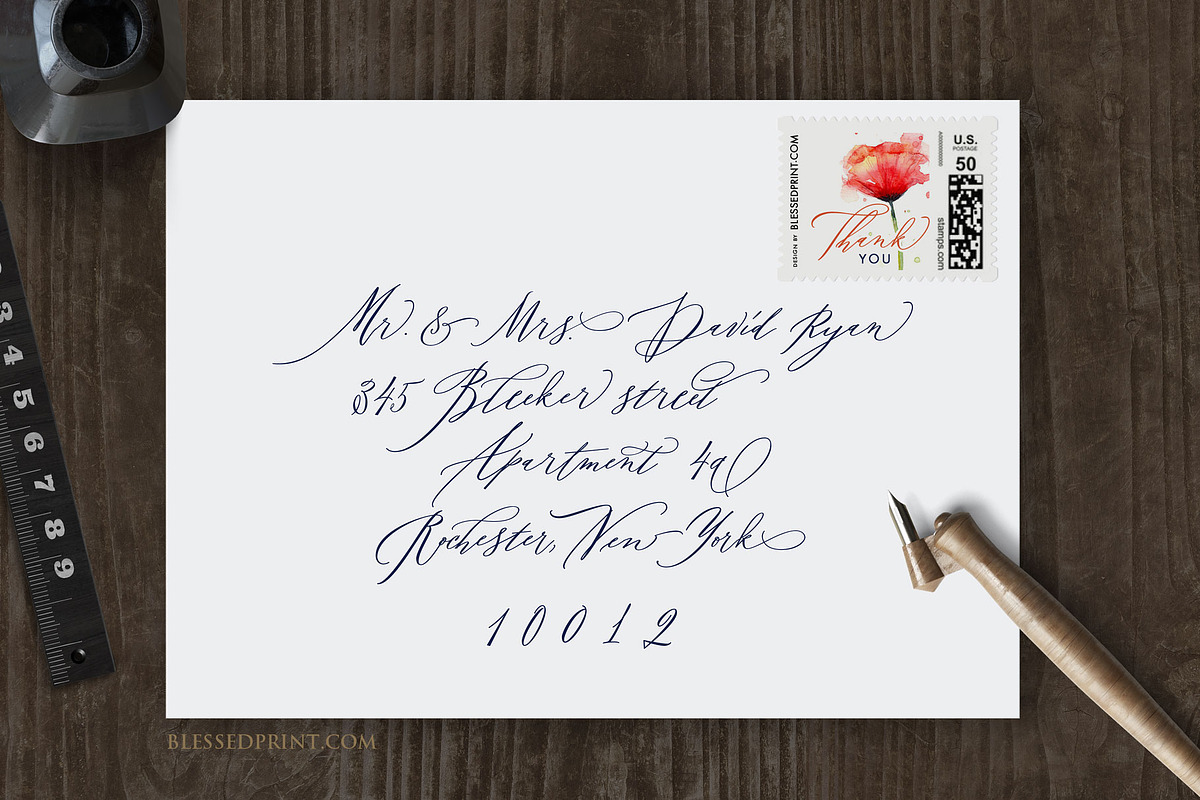 DESIGN BY BLESSEDPRINT.COM
Thank
YOU
A0000000000
stamps.com
U.S.
POSTAGE
50
Mr. & Mrs. David Ryan
345 Bleeker street
Apartment 4a
Rochester, New York
10012
3
4
5
6
7
8
9
BLESSEDPRINT.COM